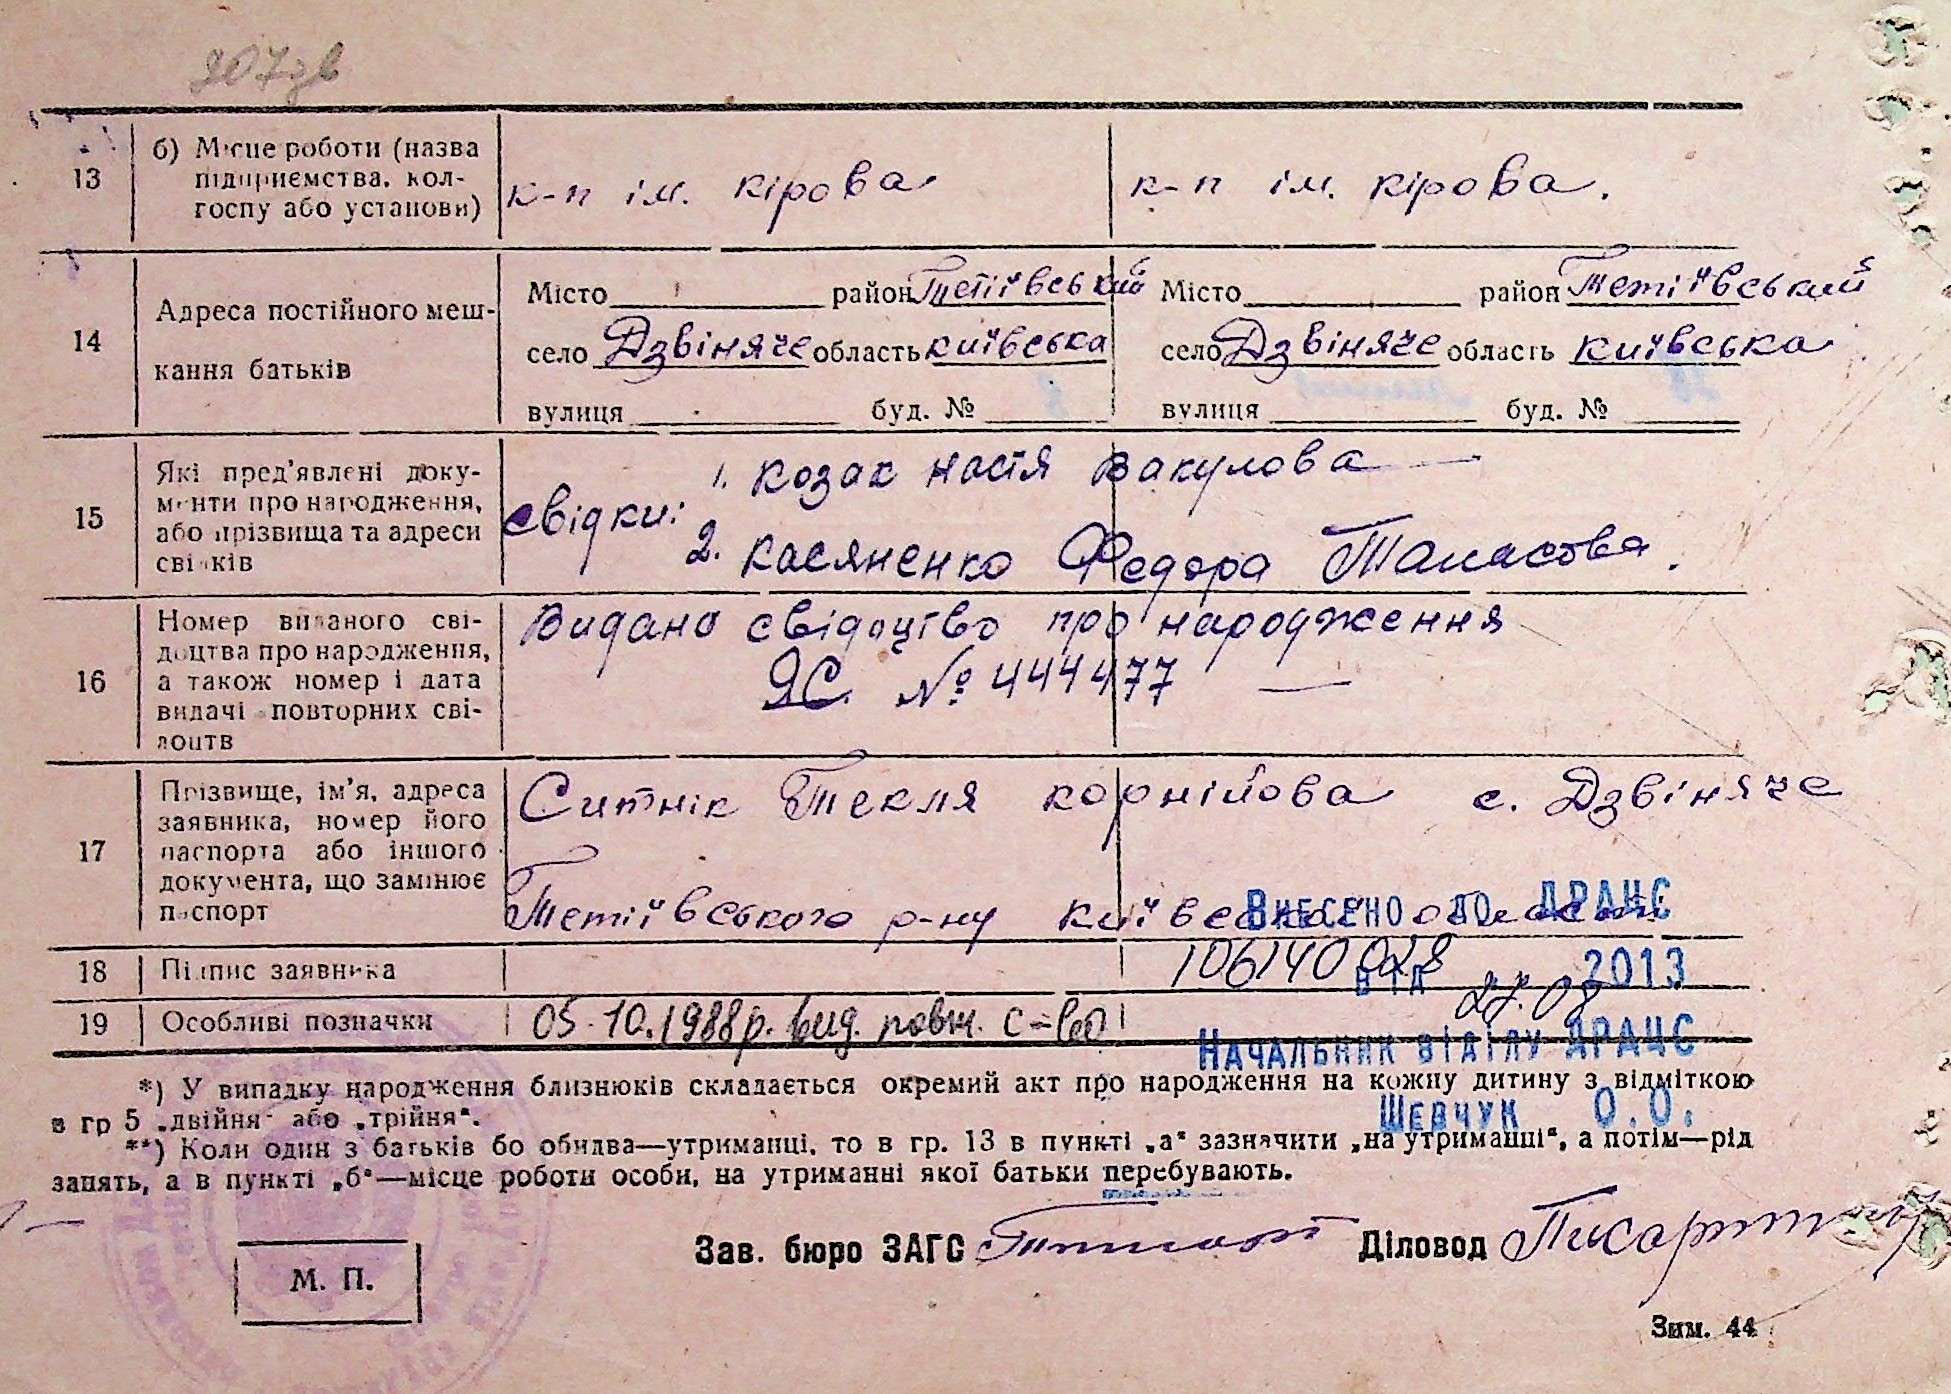 207зв
13
б) Місце роботи (назва
підприємства, кол-
госпу або установи)
к-п ім. кірова
к-п ім. кірова.
14
Адреса постійного меш-
кання батьків
Місто район Тетіївський
село Дзвіняче область київська
вулиця буд. №
Місто район Тетіївський
село Дзвіняче область київська
вулиця буд. №
15
Які пред'явлені доку-
менти про народження,
або прізвища та адреси
свідків
свідки: 1. козак настя вакулова
2. касяненко Федора
16
Номер виданого сві-
доцтва про народження,
а також номер і дата
видачі повторних сві-
доцтв
Видано свідоцтво про народження
ЯС. № 444477
17
Прізвище, ім'я, адреса
заявника, номер його
паспорта або іншого
документа, що замінює
паспорт
Ситнік Текля корнійова с. Дзвіняче
Тетіївського р-ну київської області
Внесено до ДРАЦС
18
Підпис заявника
106140028
від 27.08 2013
19
Особливі позначки
05.10.1988р. вид. повт. с-во
Начальник відділу ДРАЦС
Шевчук О.О.
*) У випадку народження близнюків складається окремий акт про народження на кожну дитину з відміткою
в гр 5 „двійня" або „трійня".
**) Коли один з батьків бо обидва—утриманці, то в гр. 13 в пункті „а" зазначити „на утриманні", а потім—рід
занять, а в пункті „б"—місце роботи особи, на утриманні якої батьки перебувають.
Зав. бюро ЗАГС
Діловод
М. П.
Зим. 44